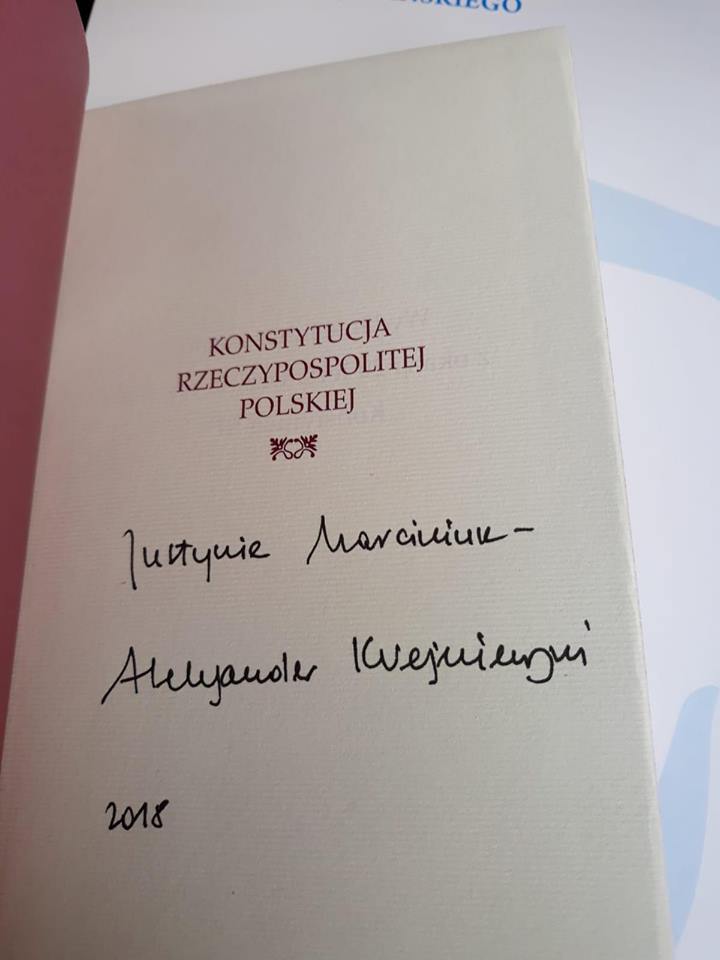 KONSTYTUCJA
RZECZYPOSPOLITEJ
POLSKIEJ
Justynie Marciniuk -
Aleksander Kwaśniewski
2018